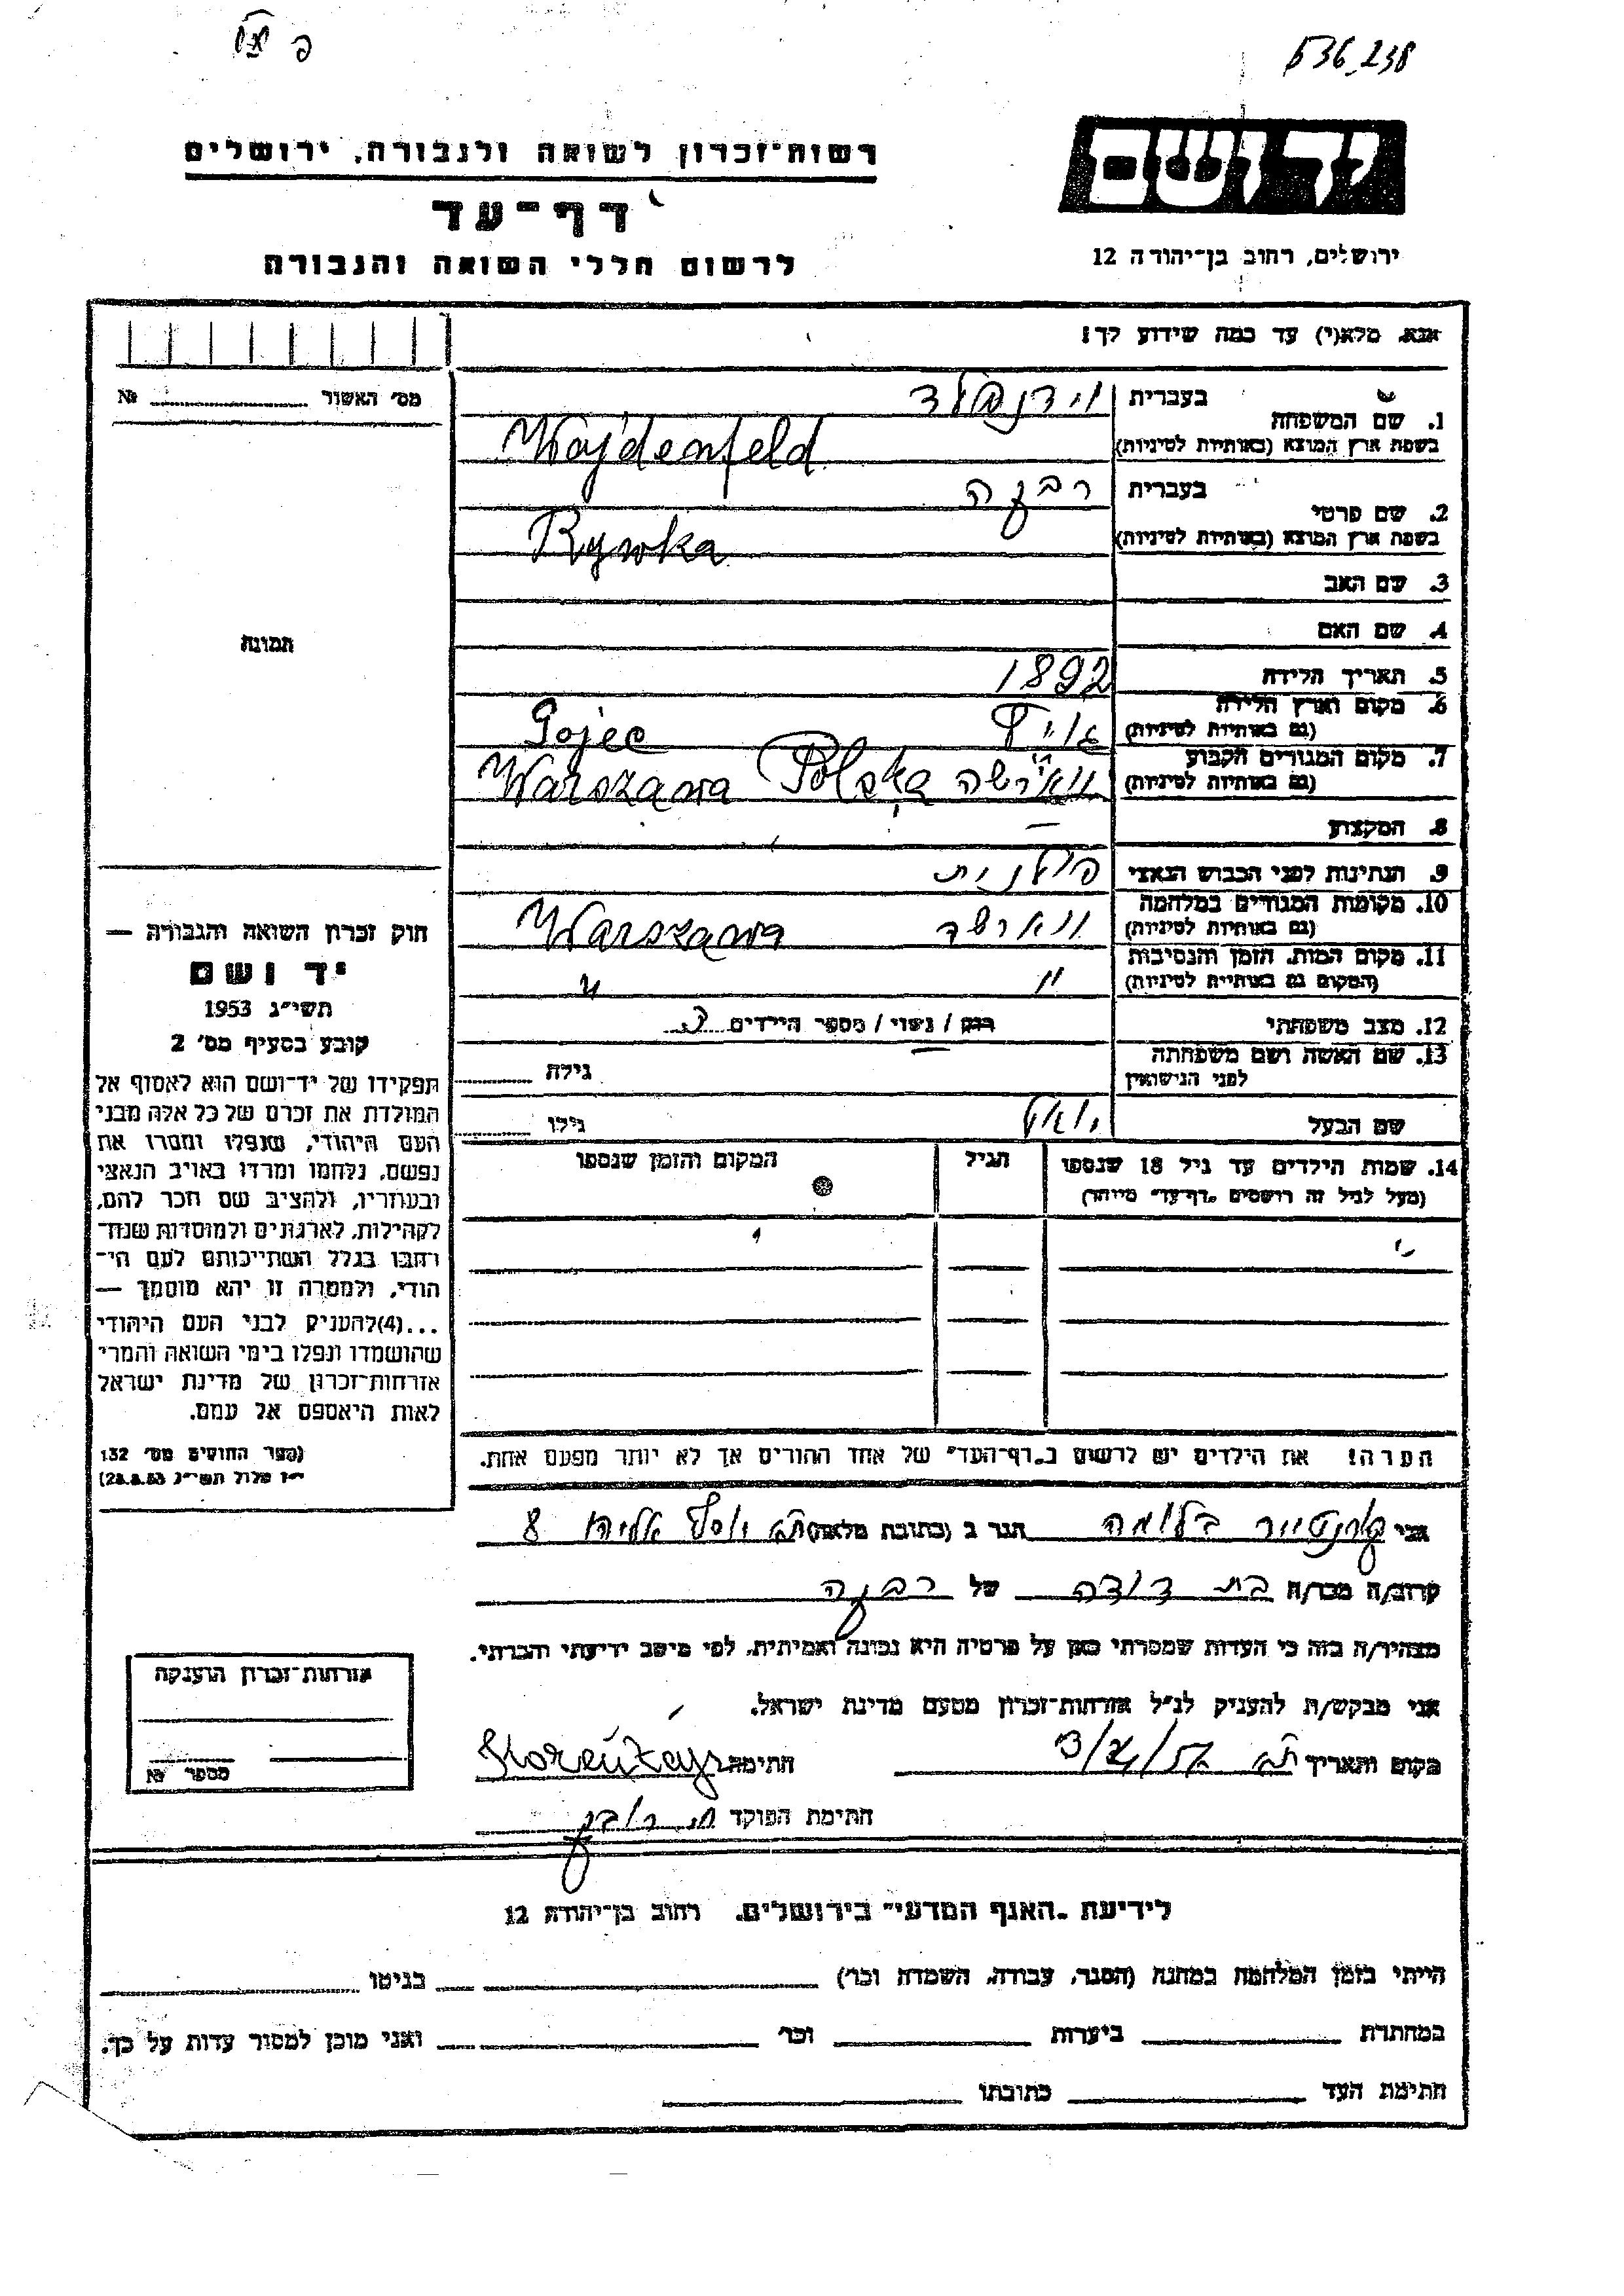 536_238
רשות-זכרון לשואה ולגבורה, ירושלים
יד ושם
דף-עד
ירושלים, רחוב בן-יהודה 12
לרשום חללי השואה והגבורה
אנא, מלא(י) עד כמה שידוע לך!
מס׳ האשור № 
1. שם המשפחה
בעברית וידנפלד
בשפת ארץ המוצא (באותיות לטיניות) Wajdenfeld
2. שם פרטי
בעברית רבקה
בשפת ארץ המוצא (באותיות לטיניות) Rywka
3. שם האב
4. שם האם
תמונה
5. תאריך הלידה 1892
6. מקום וארץ הלידה
(גם באותיות לטיניות) Gojec
7. מקום המגורים הקבוע
(גם באותיות לטיניות) ווארשה Polska Warszawa
8. המקצוע —
9. הנתינות לפני הכבוש הנאצי פולנית
10. מקומות המגורים במלחמה
(גם באותיות לטיניות) ווארשה Warszawa
11. מקום המות, הזמן והנסיבות
(המקום גם באותיות לטיניות) " "
12. מצב משפחתי רווק / נשוי / מספר הילדים
13. שם האשה ושם משפחתה
לפני הנישואין — גילה
שם הבעל יואל גילו
14. שמות הילדים עד גיל 18 שנספו
(מעל לגיל זה רושמים „דף-עד״ מיוחד)
הגיל
המקום והזמן שנספו
הערה! את הילדים יש לרשום ב„דף-העד״ של אחד ההורים אך לא יותר מפעם אחת.
חוק זכרון השואה והגבורה —
יד ושם
תשי״ג 1953
קובע בסעיף מס׳ 2
תפקידו של יד-ושם הוא לאסוף אל
המולדת את זכרם של כל אלה מבני
העם היהודי, שנפלו ומסרו את
נפשם, נלחמו ומרדו באויב הנאצי
ובעוזריו, ולהציב שם וזכר להם,
לקהילות, לארגונים ולמוסדות שנח־
רבו בגלל השתייכותם לעם הי־
הודי, ולמטרה זו יהא מוסמך —
...(4) להעניק לבני העם היהודי
שהושמדו ונפלו בימי השואה והמרי
אזרחות-זכרון של מדינת ישראל
לאות היאספם אל עמם.
(ספר החוקים מס׳ 132
י״ז אלול תשי״ג 28.8.53)
אני בלומה הגר ב (כתובת מלאה) ת״א יוסף אליהו 8
קרוב/ה מכר/ה בת דודה של רבקה
מצהיר/ה בזה כי העדות שמסרתי כאן על פרטיה היא נכונה ואמיתית, לפי מיטב ידיעתי והכרתי.
אני מבקש/ת להעניק לנ״ל אזרחות-זכרון מטעם מדינת ישראל.
מקום ותאריך ת״א חתימה
חתימת הפוקד
אזרחות-זכרון הוענקה
מספר №
לידיעת „האגף המדעי״ בירושלים, רחוב בן-יהודה 12
הייתי בזמן המלחמה במחנה (הסגר, עבודה, השמדה וכו׳) בגיטו
במחתרת ביערות וכו׳ ואני מוכן למסור עדות על כך.
חתימת העד כתובתו